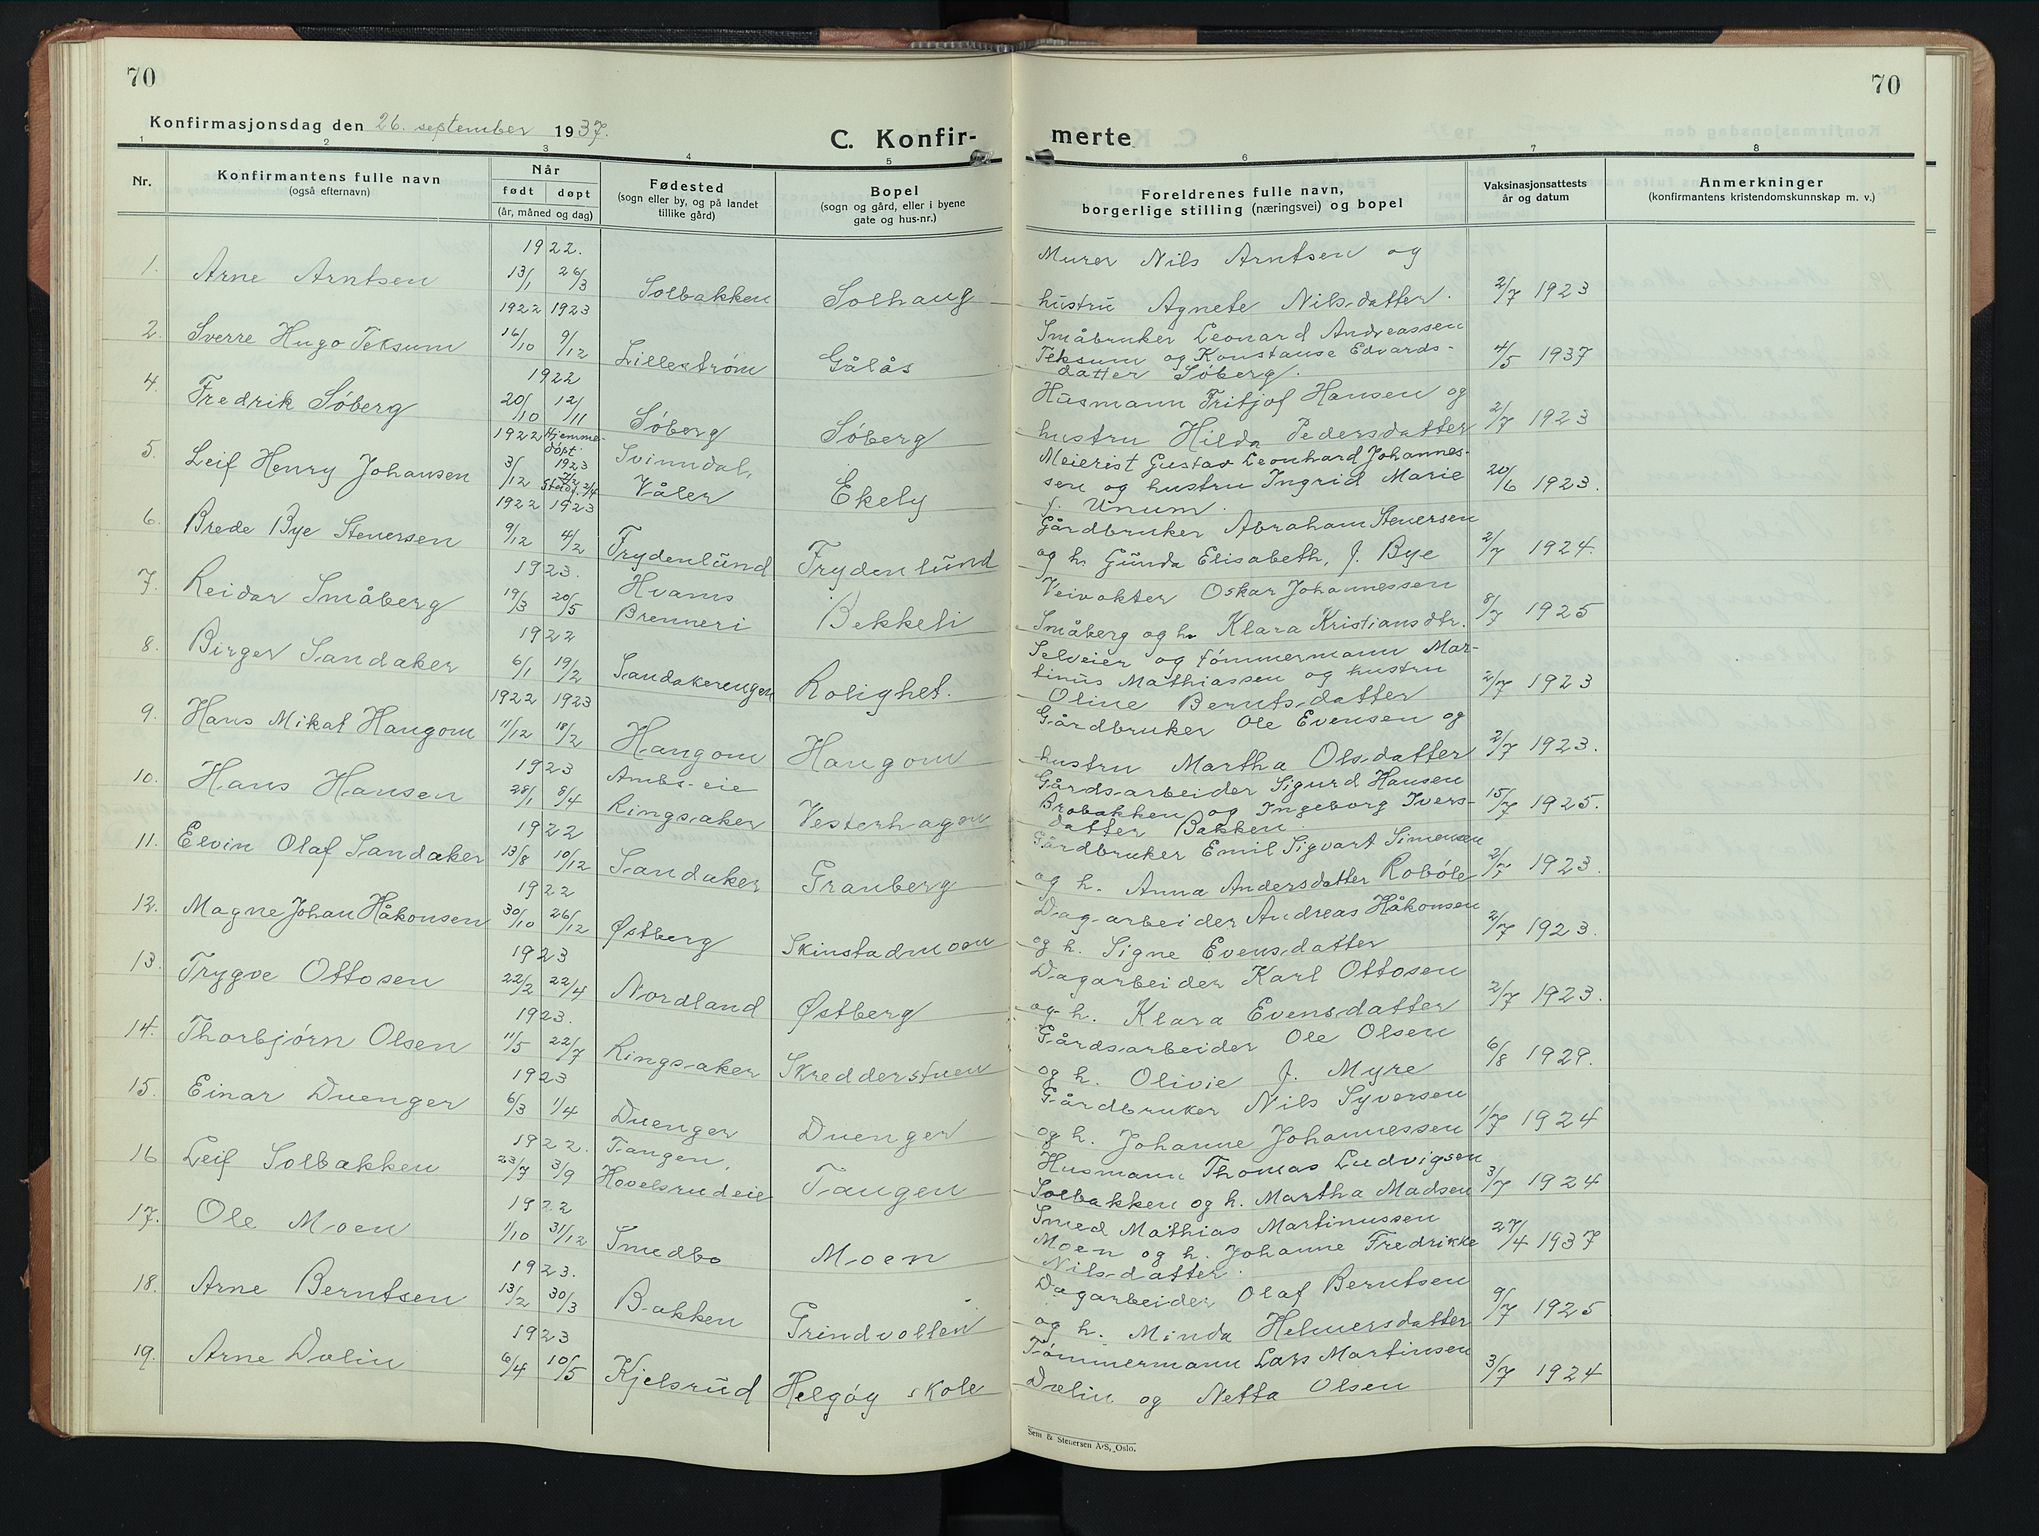 70
70
Konfirmasjonsdag den 26. september 1937.
C. Konfir-
merte
1 2 3 4 5 6 7 8
Nr.
Konfirmantens fulle navn
(også efternavn)
Når
født døpt
(år, måned og dag)
Fødested
(sogn eller by, og på landet
tillike gård)
Bopel
(sogn og gård, eller i byene
gate og hus-nr.)
Foreldrenes fulle navn,
borgerlige stilling (næringsvei) og bopel
Vaksinasjonsattests
år og datum
Anmerkninger
(konfirmantens kristendomskunnskap m. v.)
1922.
Murer Nils Arntsen og
1. Arne Arntsen 13/1 26/3 Solbakken Solhaug
hustru Agnete Nilsdatter. 2/7 1923
1922 1923
Småbruker Leonard Andreassen
2. Sverre Hugo Teksum 16/10 9/12 Lillestrøm Gålås
Teksum og Konstanse Edvards- 4/5 1937
datter Søberg.
1922
Husmann Fritjof Hansen og
4. Fredrik Søberg 20/10 12/11 Søberg Søberg
hustru Hilda Pedersdatter 2/7 1923
1922 Hjemme-
døpt.
1923
Meierist Gustav Leonhard Johannes-
5. Leif Henry Johansen 3/12 2/4 Svinndal,
Våler Ekely
sen og hustru Ingrid Marie 20/6 1923.
f. Unum.
1922 1923
Gårdbruker Abraham Stenersen
6. Brede Bye Stenersen 9/12 4/2 Frydenlund Frydenlund
og h. Gunda Elisabeth, f. Bye 2/7 1924.
1923.
Veivokter Oskar Johannessen
7. Reidar Småberg 19/3 20/5 Hvams
Brenneri Bekkeli
Småberg og h. Klara Kristiansdtr. 8/7 1925
1922
Selveier og tømmermann Mar-
8. Birger Sandaker 6/1 19/2 Sandakerengen Rolighet.
tinus Mathiassen og hustru 2/7 1923
Oline Berntsdatter
1922 1923
Gårdbruker Ole Evensen og
9. Hans Mikal Haugom 11/12 18/2 Haugom Haugom
hustru Martha Olsdatter 2/7 1923.
1923
Gårdsarbeider Sigurd Hansen
10. Hans Hansen 28/1 8/4 Ambs-eie
Ringsaker Vesterhagen
Brobakken og Ingeborg Ivers- 15/7 1925.
datter Bakken
1922
Gårdbruker Emil Sigvart Simensen
11. Elvin Olaf Sandaker 13/8 10/12 Sandaker Granberg
og h. Anna Andersdatter Robøle 2/7 1923.
1922
Dagarbeider Andreas Håkonsen
12. Magne Johan Håkonsen 30/10 26/12 Østberg Skinstadmoen
og h. Signe Evensdatter 2/7 1923.
1923
Dagarbeider Karl Ottosen
13. Trygve Ottosen 22/2 22/4 Nordland Østberg
og h. Klara Evensdatter 2/7 1923.
1923.
Gårdsarbeider Ole Olsen
14. Thorbjørn Olsen 11/5 22/7 Ringsaker Skredderstuen
og h. Olivie f. Myre 6/8 1929.
1923
Gårdbruker Nils Syversen
15. Einar Duenger 6/3 1/4 Duenger Duenger
og h. Johanne Johannessen 1/7 1924
1922.
Husmann Thomas Ludvigsen
16 Leif Solbakken 23/7 3/9 Tangen,
Hovelsrudeie Tangen
Solbakken og h. Martha Madsen 3/7 1924
1922
Smed Mathias Martinussen
17. Ole Moen 1/10 31/12 Smedbo Moen
Moen og h. Johanne Fredrikke 27/4 1937
Nilsdatter.
1923.
Dagarbeider Olaf Berntsen
18. Arne Berntsen 13/2 30/3 Bakken Grindvollen
og h. Minda Helmersdatter 9/7 1925
1923
Tømmermann Lars Martinsen
19. Arne Dælin 6/4 10/5 Kjelsrud Helgøy skole
Dælin og Netta Olsen 3/7 1924
Sem & Stenersen A/S, Oslo.